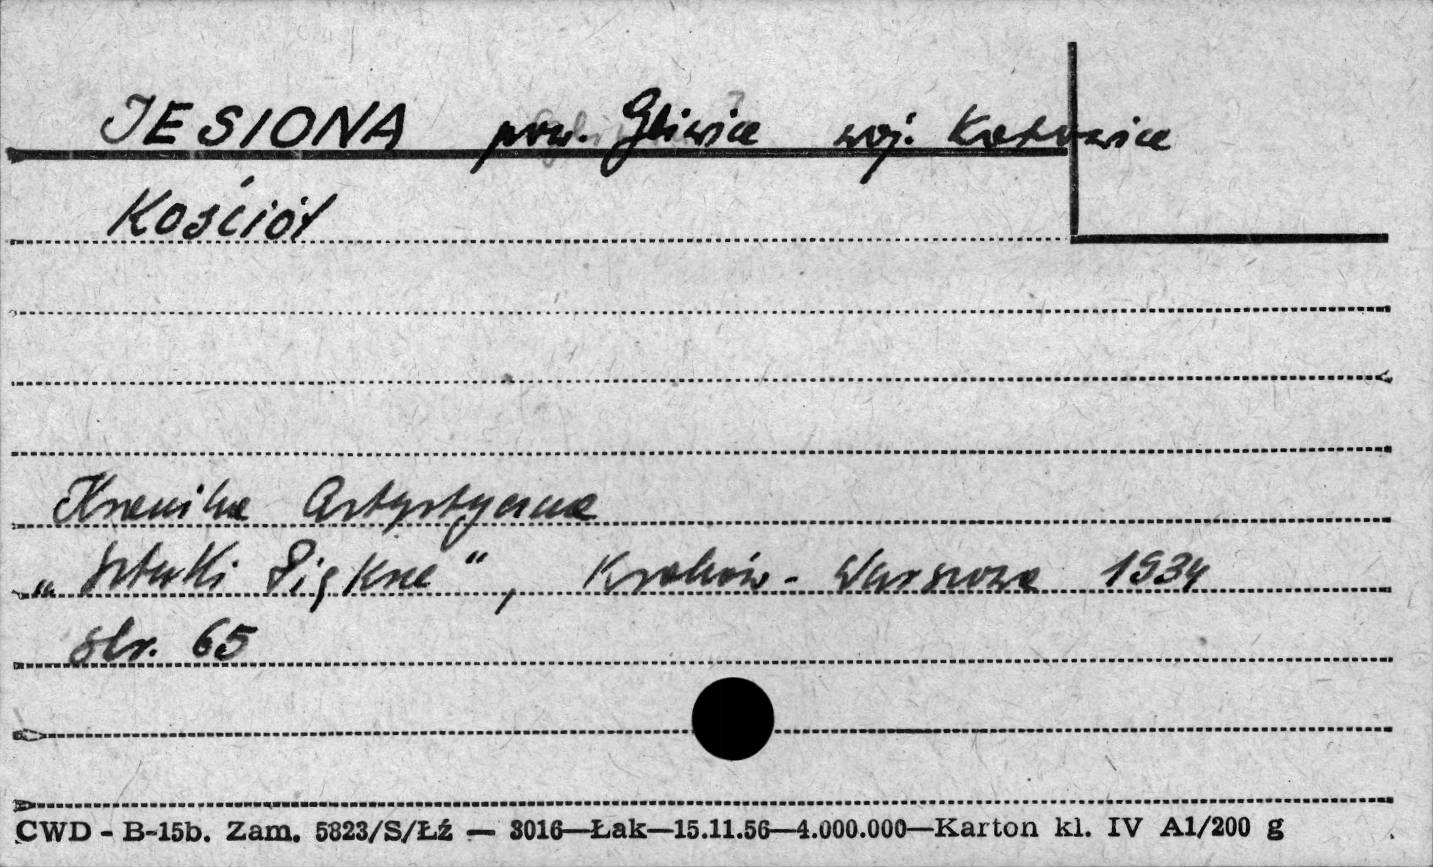 JESIONA pow. Gliwice woj. Katowice
Kościół
Kronika Artystyczna
„Sztuki Piękne", Kraków - Warszawa 1934
str. 65
CWD - B-15b. Zam. 5823/S/Łź — 3016—Łak—15.11.56—4.000.000—Karton kl. IV A1/200 g